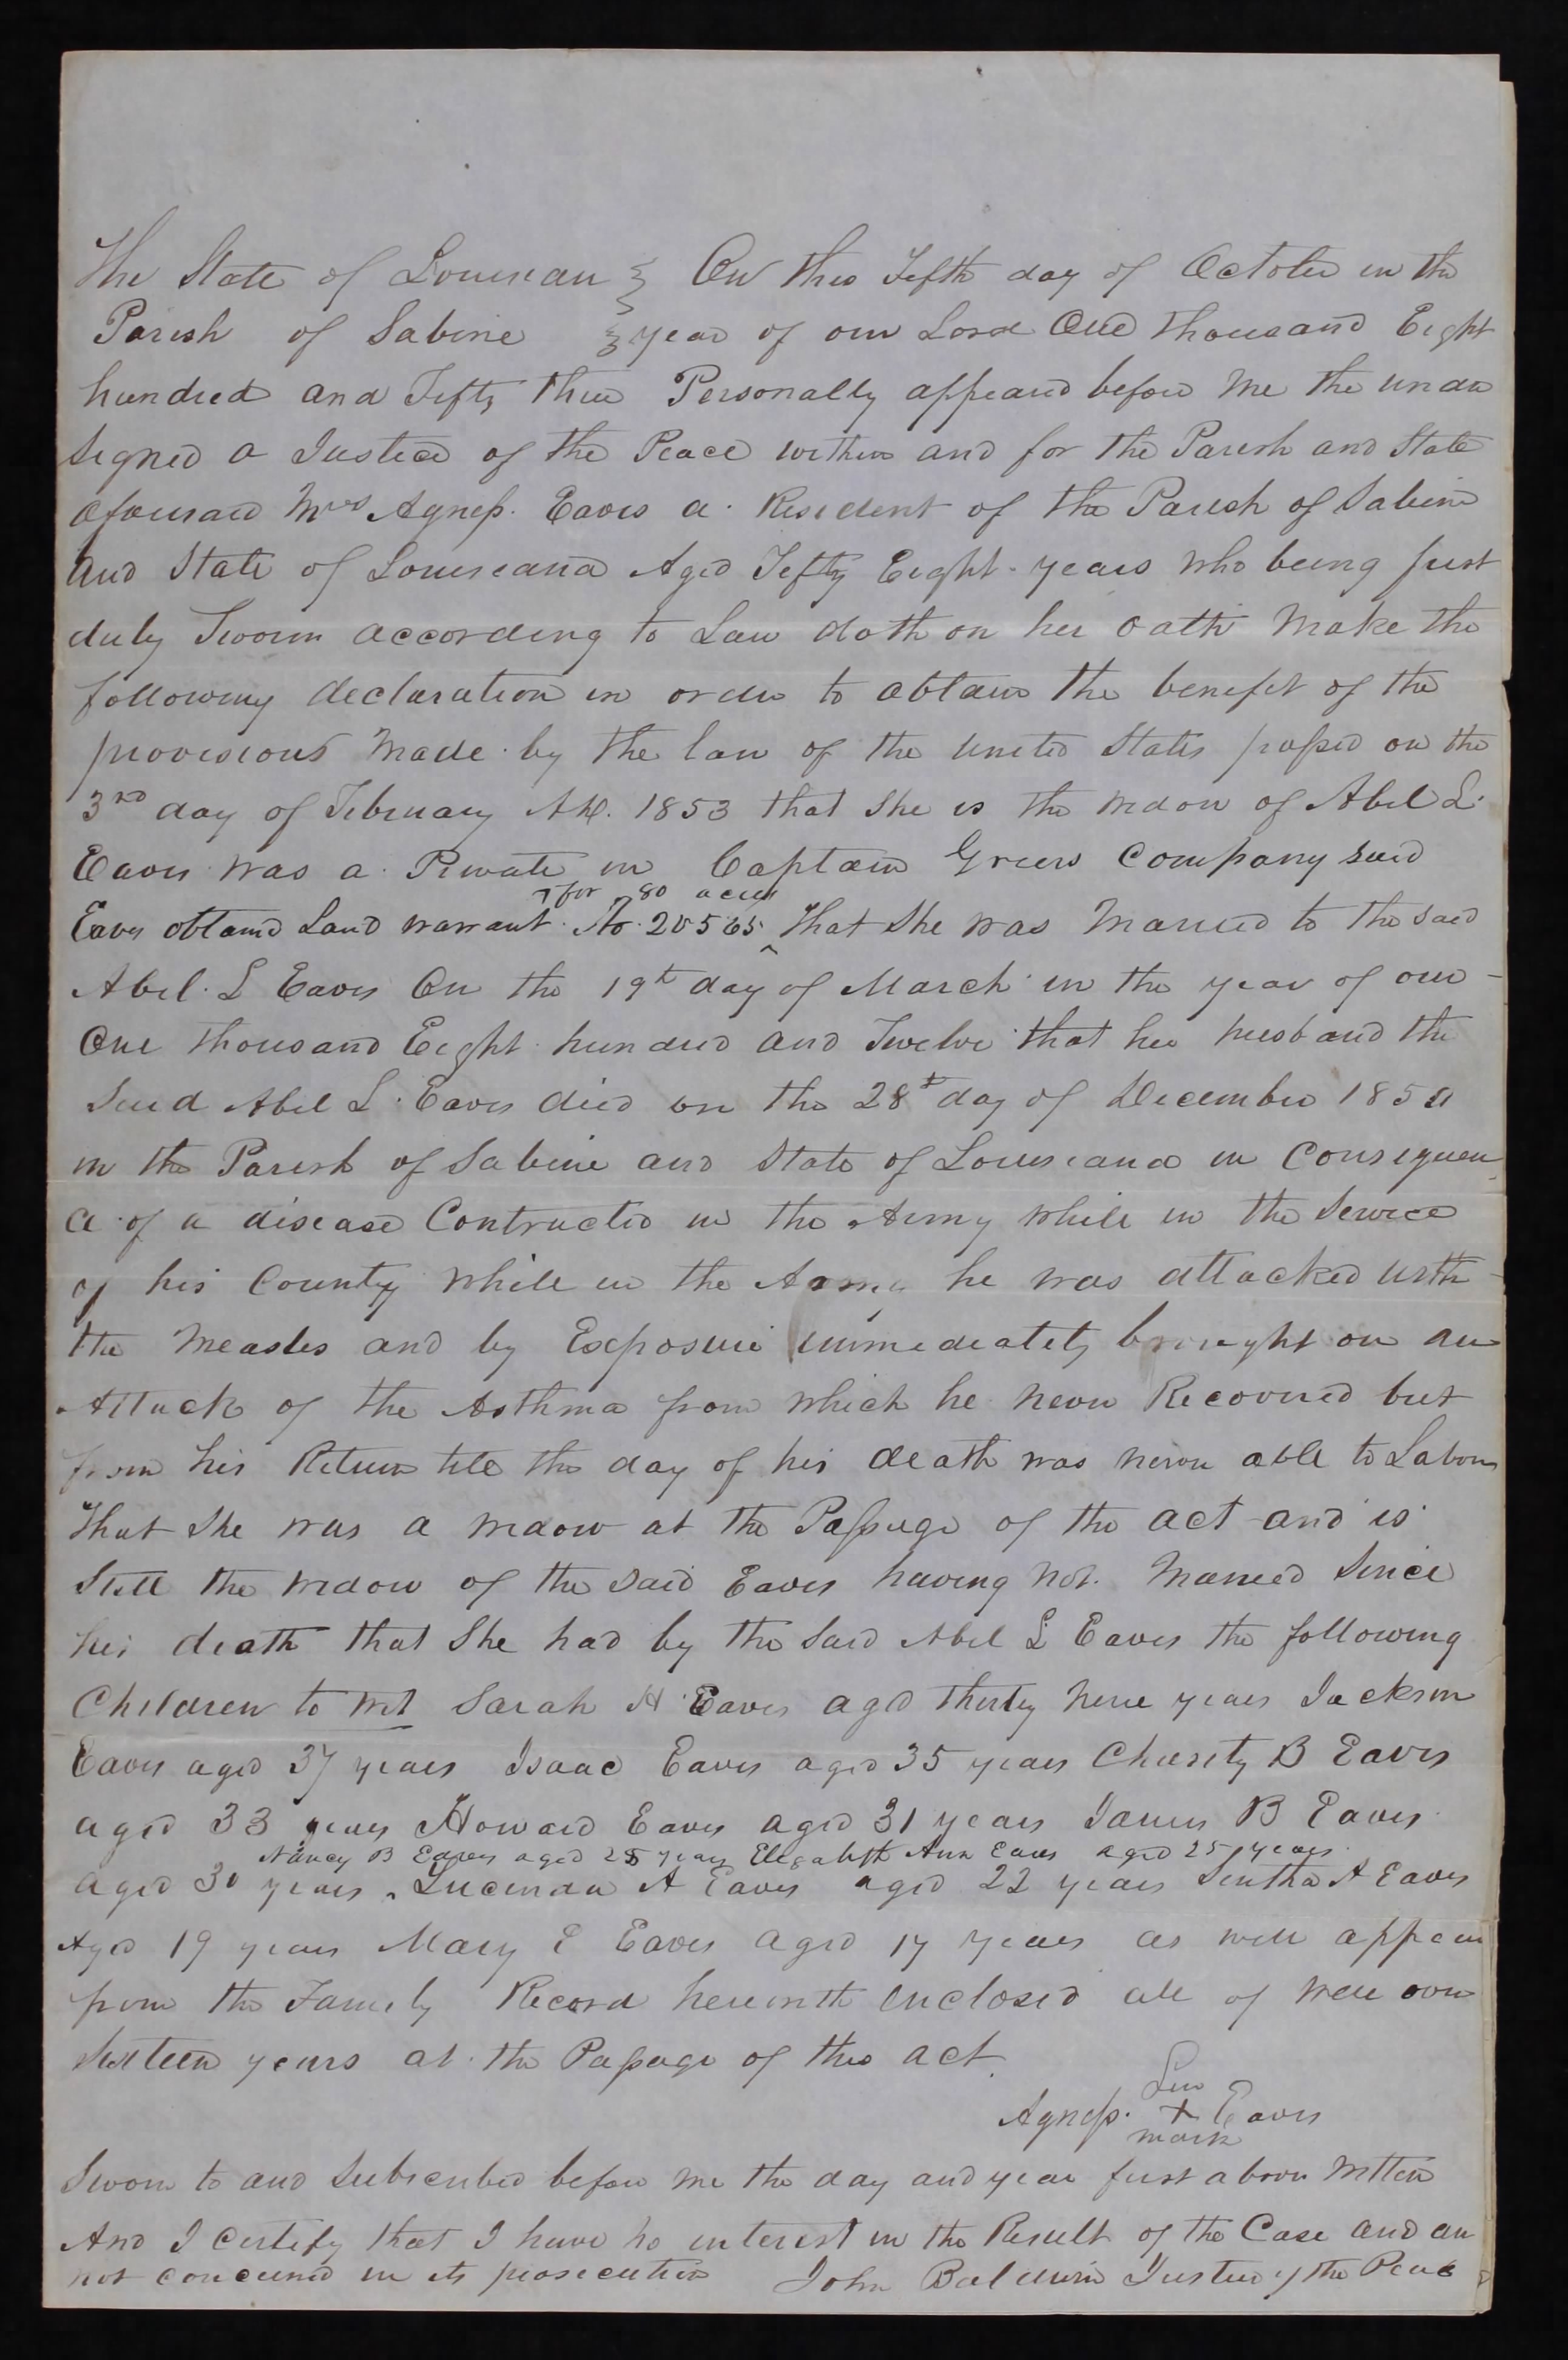 The State of Louisian } On this Fifth day of October in the
Parish of Sabine } year of our Lord One thousand Eight
hundred and Fifty three Personally appeard before me the under
signed a Justice of the Peace within and for the Parish and State
aforesaid Mrs Agness. Eaves a Resident of the Parish of Sabine
and State of Louiseana Aged Fifty Eight years who being first
duly Sworn according to Law doth on her oath make the
following declaration in order to obtain the benefit of the
provisions made by the law of the united States passed on the
3rd day of February AD. 1853 that She is the widow of Abel L.
Eaves was a Private in Captain Greens Company said
for 80 acres
Eaves obtaind Land warrant No. 20565 that She was Married to the said
Abel. L Eaves On the 19th day of March in the year of our
One thousand Eight hundred and Twelve that her husband the
Said Abel L. Eaves died on the 28th day of December
in the Parish of Sabine and State of Louiseana in Consequen
ce of a disease Contracted in the Army while in the Service
of his County while in the Army he was attacked with
the Measles and by Exposure immediately brought on an
Attack of the Asthma from which he never Recovered but
from his Return till the day of his death was never able to Labour
That She was a widow at the Passage of the act and is
Still the widow of the said Eaves having not. Married Since
his death that She had by the Said Abel L Eaves the following
Children to wit Sarah H Eaves aged thirty nine years Jackson
Eaves aged 37 years Isaac Eaves aged 35 years Charity B Eaves
aged 33 years Howard Eaves aged 31 years James B Eaves
Nancy B Eaves aged years Elizabeth Ann Eaves aged 25 years
aged 30 years Lucinda A Eaves aged 22 years A Eaves
Aged 19 years Mary E Eaves aged 17 years as will appear
from the Family Record herewith enclosed all of were over
Sixteen years at the Passage of this act
Agness. her + mark Eaves
Sworn to and Subscribed before me the day and year first above written
And I certify that I have no interest in the Result of the Case and am
not concerned in its prosecution John Baldwin Justice of the Peace